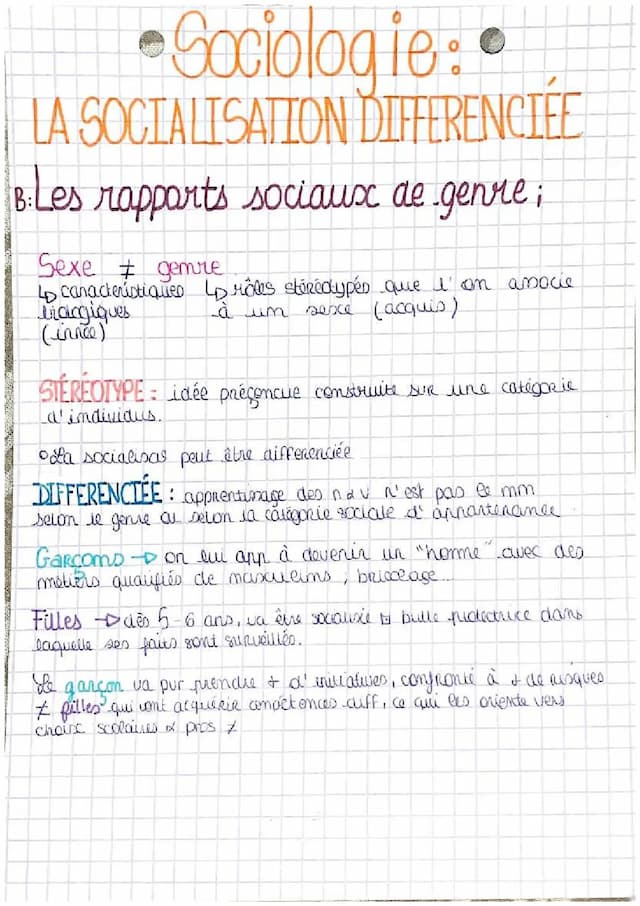 Sociologie :
LA SOCIALISATION DIFFERENCIÉE
B: Les rapports sociaux de genre ;
Sexe ≠ genre
↳ caractéristiques ↳ rôles stéréotypés que l'on associe
biologiques à un sexe (acquis)
(innée)
STÉRÉOTYPE : idée préconçue construite sur une catégorie
d'individus.
La socialisas peut être differenciée
DIFFERENCIÉE : apprentissage des n d v n'est pas le mm
selon le genre ou selon la catégorie sociale d'appartenance
Garçons → on lui app à devenir un "homme" avec des
métiers qualifiés de masculins, bricolage...
Filles → dès 5-6 ans, va être socialisée bulle protectrice dans
laquelle ses faits sont surveillés.
Le garçon va pvr prendre + d'initiatives, confronté à + de risques
≠ filles qui vont acquérir diff, ce qui les oriente vers
choix scolaires & pros ≠